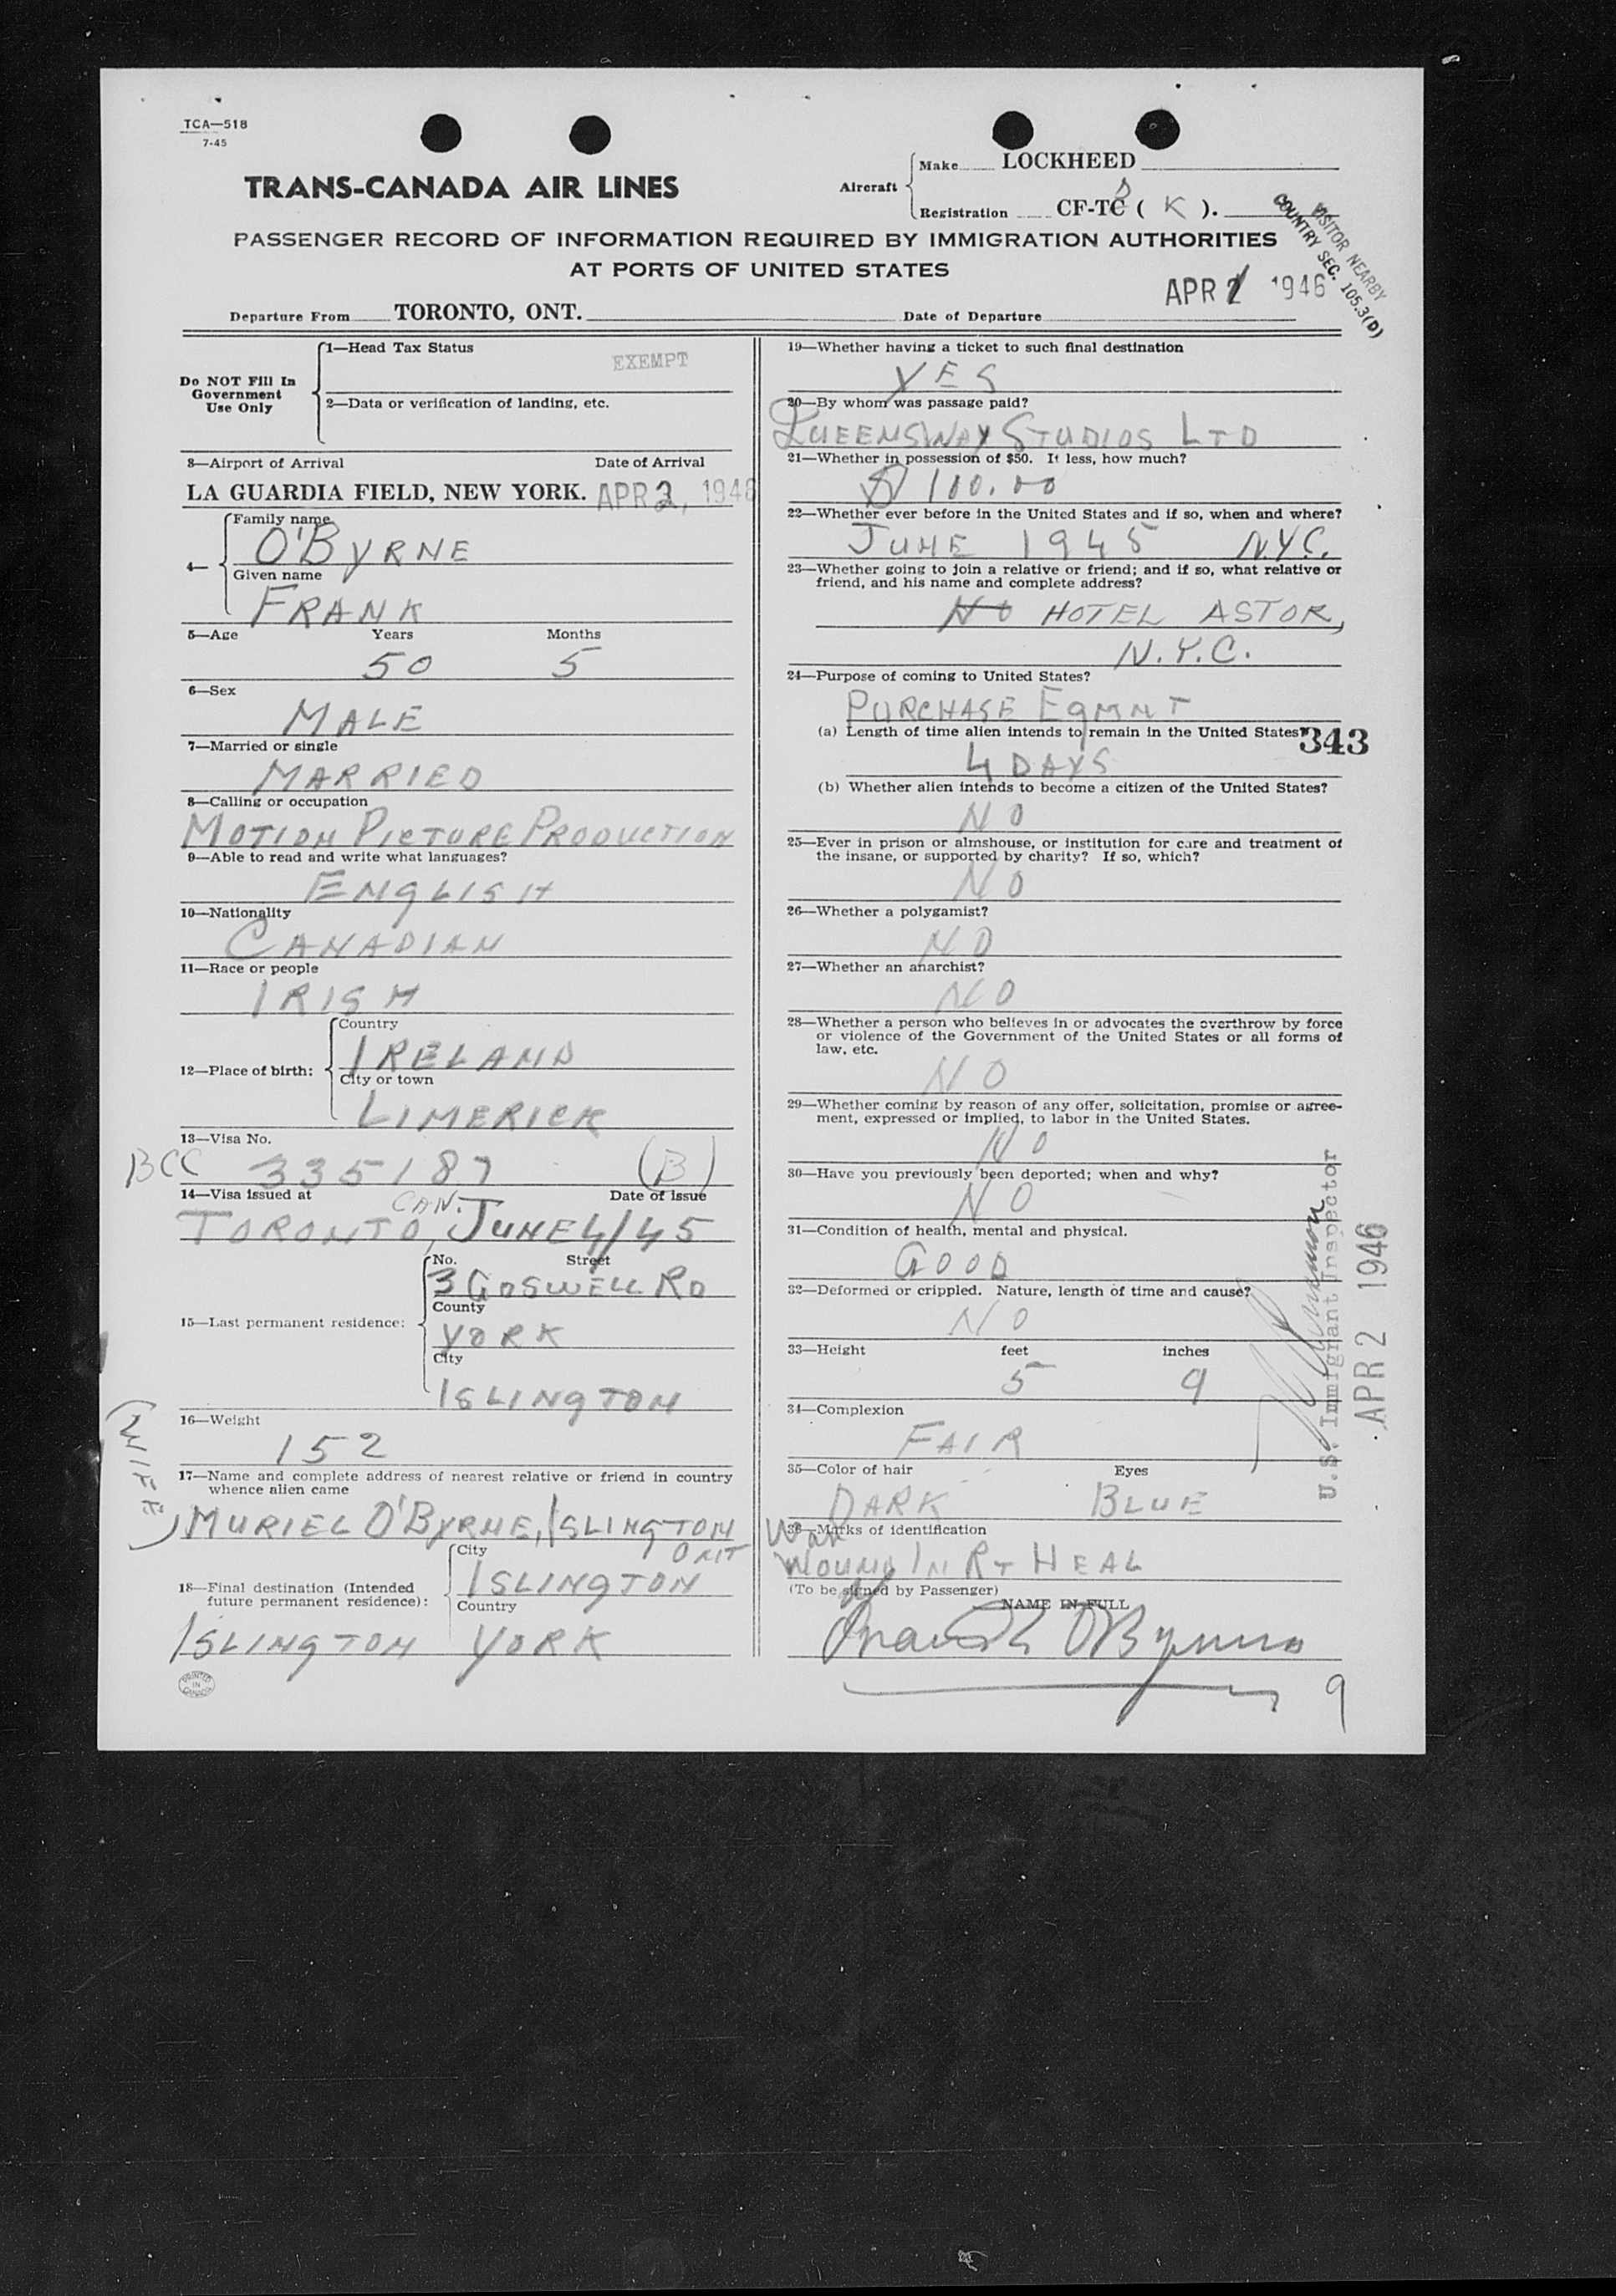 TCA—518
7-45
TRANS-CANADA AIR LINES
Aircraft
Make LOCKHEED
Registration CF-TC D ( K ).
VISITOR NEARBY
COUNTRY SEC. 105.3(D)
PASSENGER RECORD OF INFORMATION REQUIRED BY IMMIGRATION AUTHORITIES
AT PORTS OF UNITED STATES
Departure From TORONTO, ONT.
Date of Departure APR 2 1946
Do NOT Fill In
Government
Use Only
1—Head Tax Status EXEMPT
2—Data or verification of landing, etc.
3—Airport of Arrival Date of Arrival
LA GUARDIA FIELD, NEW YORK. APR 2, 1946
4—
Family name
O'BYRNE
Given name
FRANK
5—Age Years Months
50 5
6—Sex
MALE
7—Married or single
MARRIED
8—Calling or occupation
MOTION PICTURE PRODUCTION
9—Able to read and write what languages?
ENGLISH
10—Nationality
CANADIAN
11—Race or people
IRISH
12—Place of birth:
Country
IRELAND
City or town
LIMERICK
13—Visa No.
BCC 335187 (B)
14—Visa issued at Date of issue
CAN.
TORONTO, JUNE 4/45
15—Last permanent residence:
No. Street
3 GOSWELL RD
County
YORK
City
ISLINGTON
16—Weight
152
17—Name and complete address of nearest relative or friend in country
whence alien came
(WIFE)
MURIEL O'BYRNE, ISLINGTON
ONT
18—Final destination (Intended
future permanent residence):
City
ISLINGTON
Country
ISLINGTON YORK
PRINTED
IN
CANADA
19—Whether having a ticket to such final destination
YES
20—By whom was passage paid?
QUEENSWAY STUDIOS LTD
21—Whether in possession of $50. If less, how much?
$100.00
22—Whether ever before in the United States and if so, when and where?
JUNE 1945 N.Y.C.
23—Whether going to join a relative or friend; and if so, what relative or
friend, and his name and complete address?
NO HOTEL ASTOR,
N.Y.C.
24—Purpose of coming to United States?
PURCHASE EQMNT
(a) Length of time alien intends to remain in the United States?
343
4 DAYS
(b) Whether alien intends to become a citizen of the United States?
NO
25—Ever in prison or almshouse, or institution for care and treatment of
the insane, or supported by charity? If so, which?
NO
26—Whether a polygamist?
NO
27—Whether an anarchist?
NO
28—Whether a person who believes in or advocates the overthrow by force
or violence of the Government of the United States or all forms of
law, etc.
NO
29—Whether coming by reason of any offer, solicitation, promise or agree-
ment, expressed or implied, to labor in the United States.
NO
30—Have you previously been deported; when and why?
NO
31—Condition of health, mental and physical.
GOOD
32—Deformed or crippled. Nature, length of time and cause?
NO
33—Height feet inches
5 9
34—Complexion
FAIR
35—Color of hair Eyes
DARK BLUE
36—Marks of identification
War
WOUND IN RT HEAL
(To be signed by Passenger)
NAME IN FULL
Frank O'Byrne
9
U.S. Immigrant Inspector
APR 2 1946